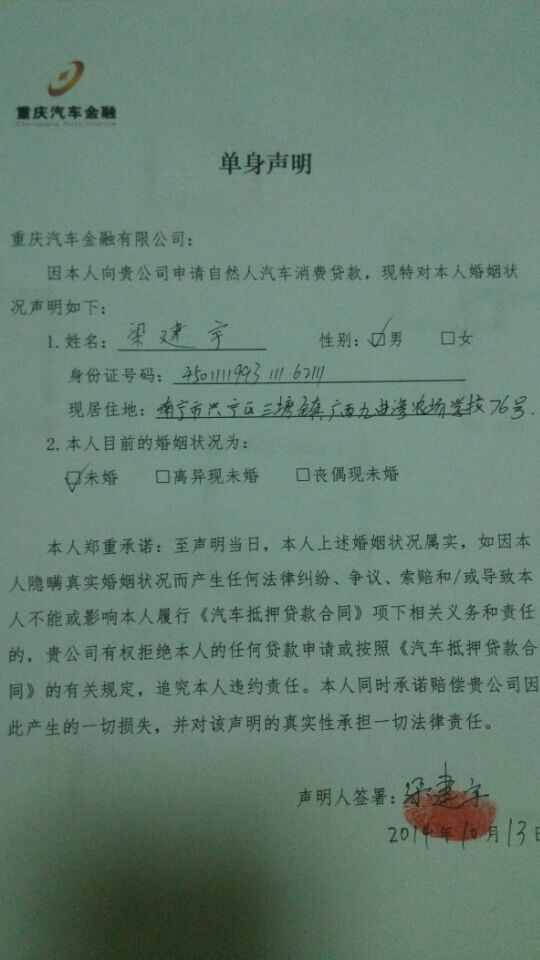 重庆汽车金融
Chongqing Auto Finance
单身声明
重庆汽车金融有限公司：
因本人向贵公司申请自然人汽车消费贷款，现特对本人婚姻状
况声明如下：
1.姓名：梁建宇 性别：☑男 □女
身份证号码：
现居住地：南宁市兴宁区三塘镇广西九曲湾农场学校76号.
2.本人目前的婚姻状况为：
☑未婚 □离异现未婚 □丧偶现未婚
本人郑重承诺：至声明当日，本人上述婚姻状况属实，如因本
人隐瞒真实婚姻状况而产生任何法律纠纷、争议、索赔和/或导致本
人不能或影响本人履行《汽车抵押贷款合同》项下相关义务和责任
的，贵公司有权拒绝本人的任何贷款申请或按照《汽车抵押贷款合
同》的有关规定，追究本人违约责任。本人同时承诺赔偿贵公司因
此产生的一切损失，并对该声明的真实性承担一切法律责任。
声明人签署：梁建宇
2014年10月13日